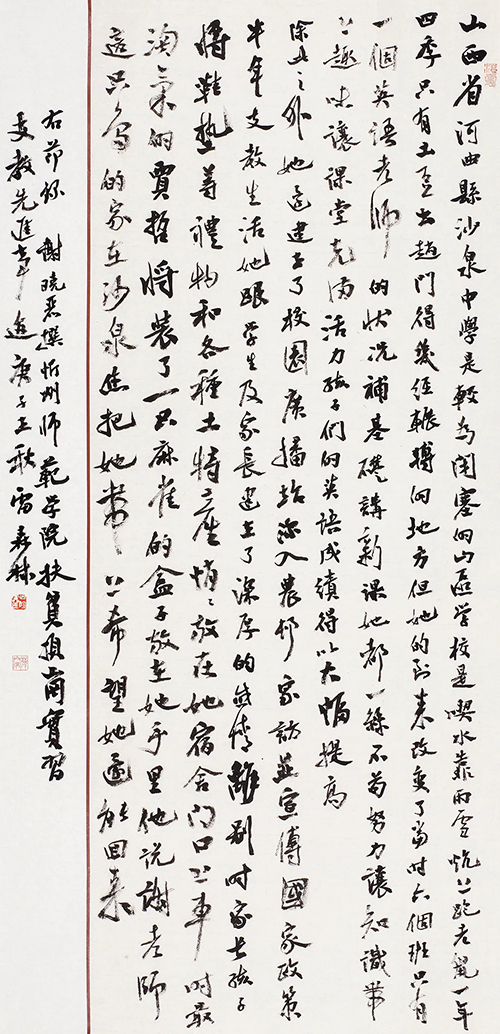 山西省河曲縣沙泉中學是較为閉塞的山區学校是喫水靠雨雪炕上跑老鼠一年
四季只有土豆出趟門得幾经輾轉的地方但她的到来改变了当时六個班只有
一個英語老师的状况補基礎講新课她都一絲不苟努力讓知識带
上趣味讓课堂充满活力孩子们的英语成績得以大幅提高
除此之外她還建立了校園廣播站深入農村家訪並宣傳國家政策
半年支教生活她跟学生及家長建立了深厚的感情離别时家长孩子
将鞋墊等禮物和各種土特產悄悄放在她宿舍门口上车时最
淘氣的賈哲将裝了一只麻雀的盒子放在她手里他说謝老师
這只鸟的家在沙泉您把她带上希望她還能回来
右节録謝曉撰忻州师範学院扶貧頂崗實習
支教先進事迹庚子秋雷森林